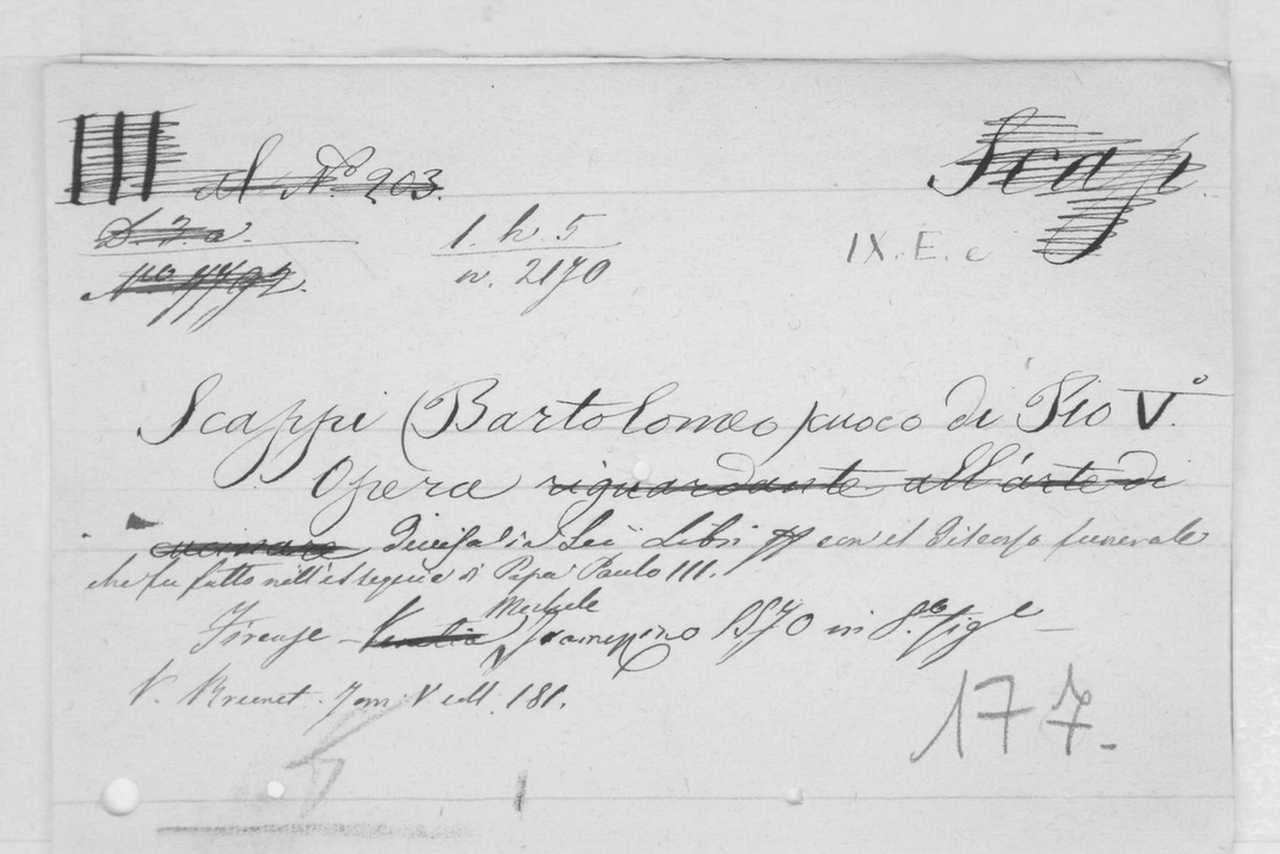 III al Nº 203. Scap.
D. 7. a. 1. h. 5 IX. E. c
n. 2170
Scappi (Bartolomeo) cuoco di Pio Vº.
Opera riguardante all'arte di
cucinare divisa in Sei Libri con il discorso funerale
che fu fatto nell'essequie di Papa Paulo III.
Michele
Firenze - Venetia Tramezzino 1570 in 8.º fig.e
V. Brunet. Tom. V coll. 181.
177.